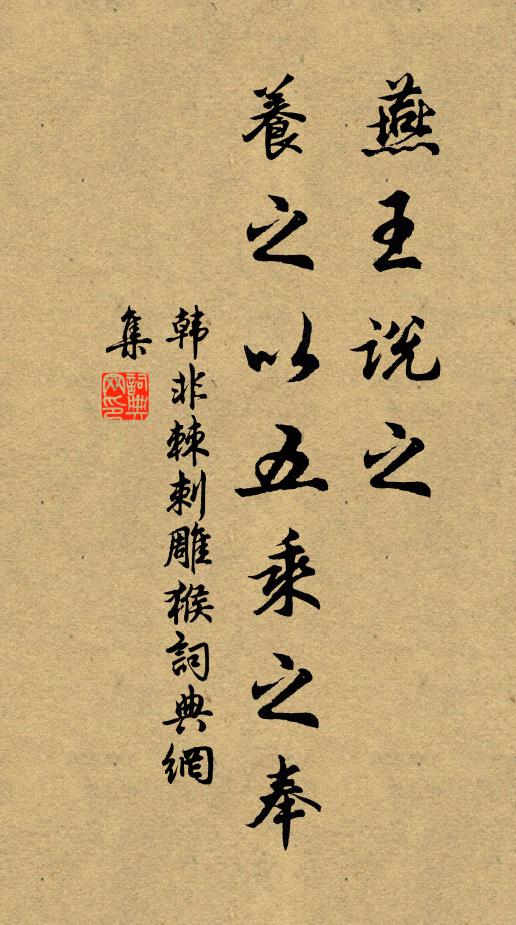 燕王説之
養之以五乘之奉
韩非棘刺雕猴詞典網
集
詞典
网印